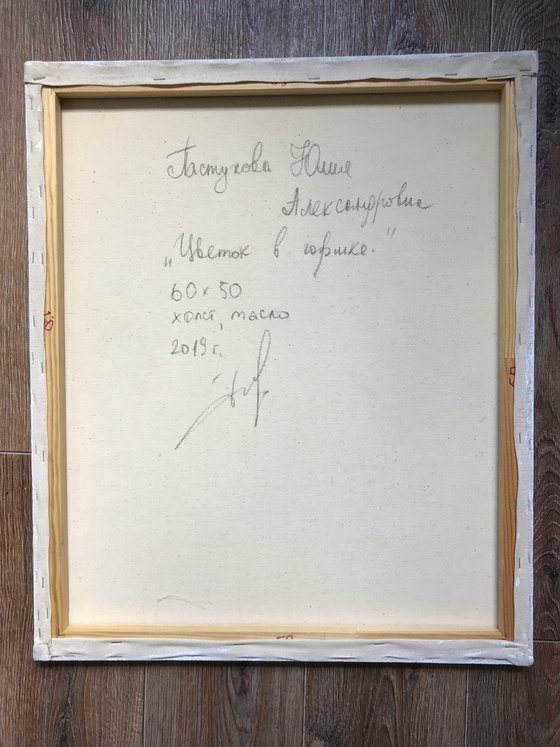 Пастухова Юлия
Александровна
„Цветок в горшке."
60 х 50
холст, масло
2019 г.